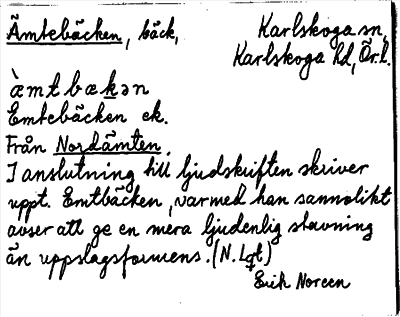 Ämtebäcken, bäck, Karlskoga sn,
Karlskoga hd, Ör.l.
àmtbækən
Emtebäcken ek.
Från Nordämten.
I anslutning till ljudskriften skriver
uppt. Emtbäcken, varmed han sannolikt
avser att ge en mera ljudenlig stavning
än uppslagsformens. (N. Lgt)
Erik Noreen